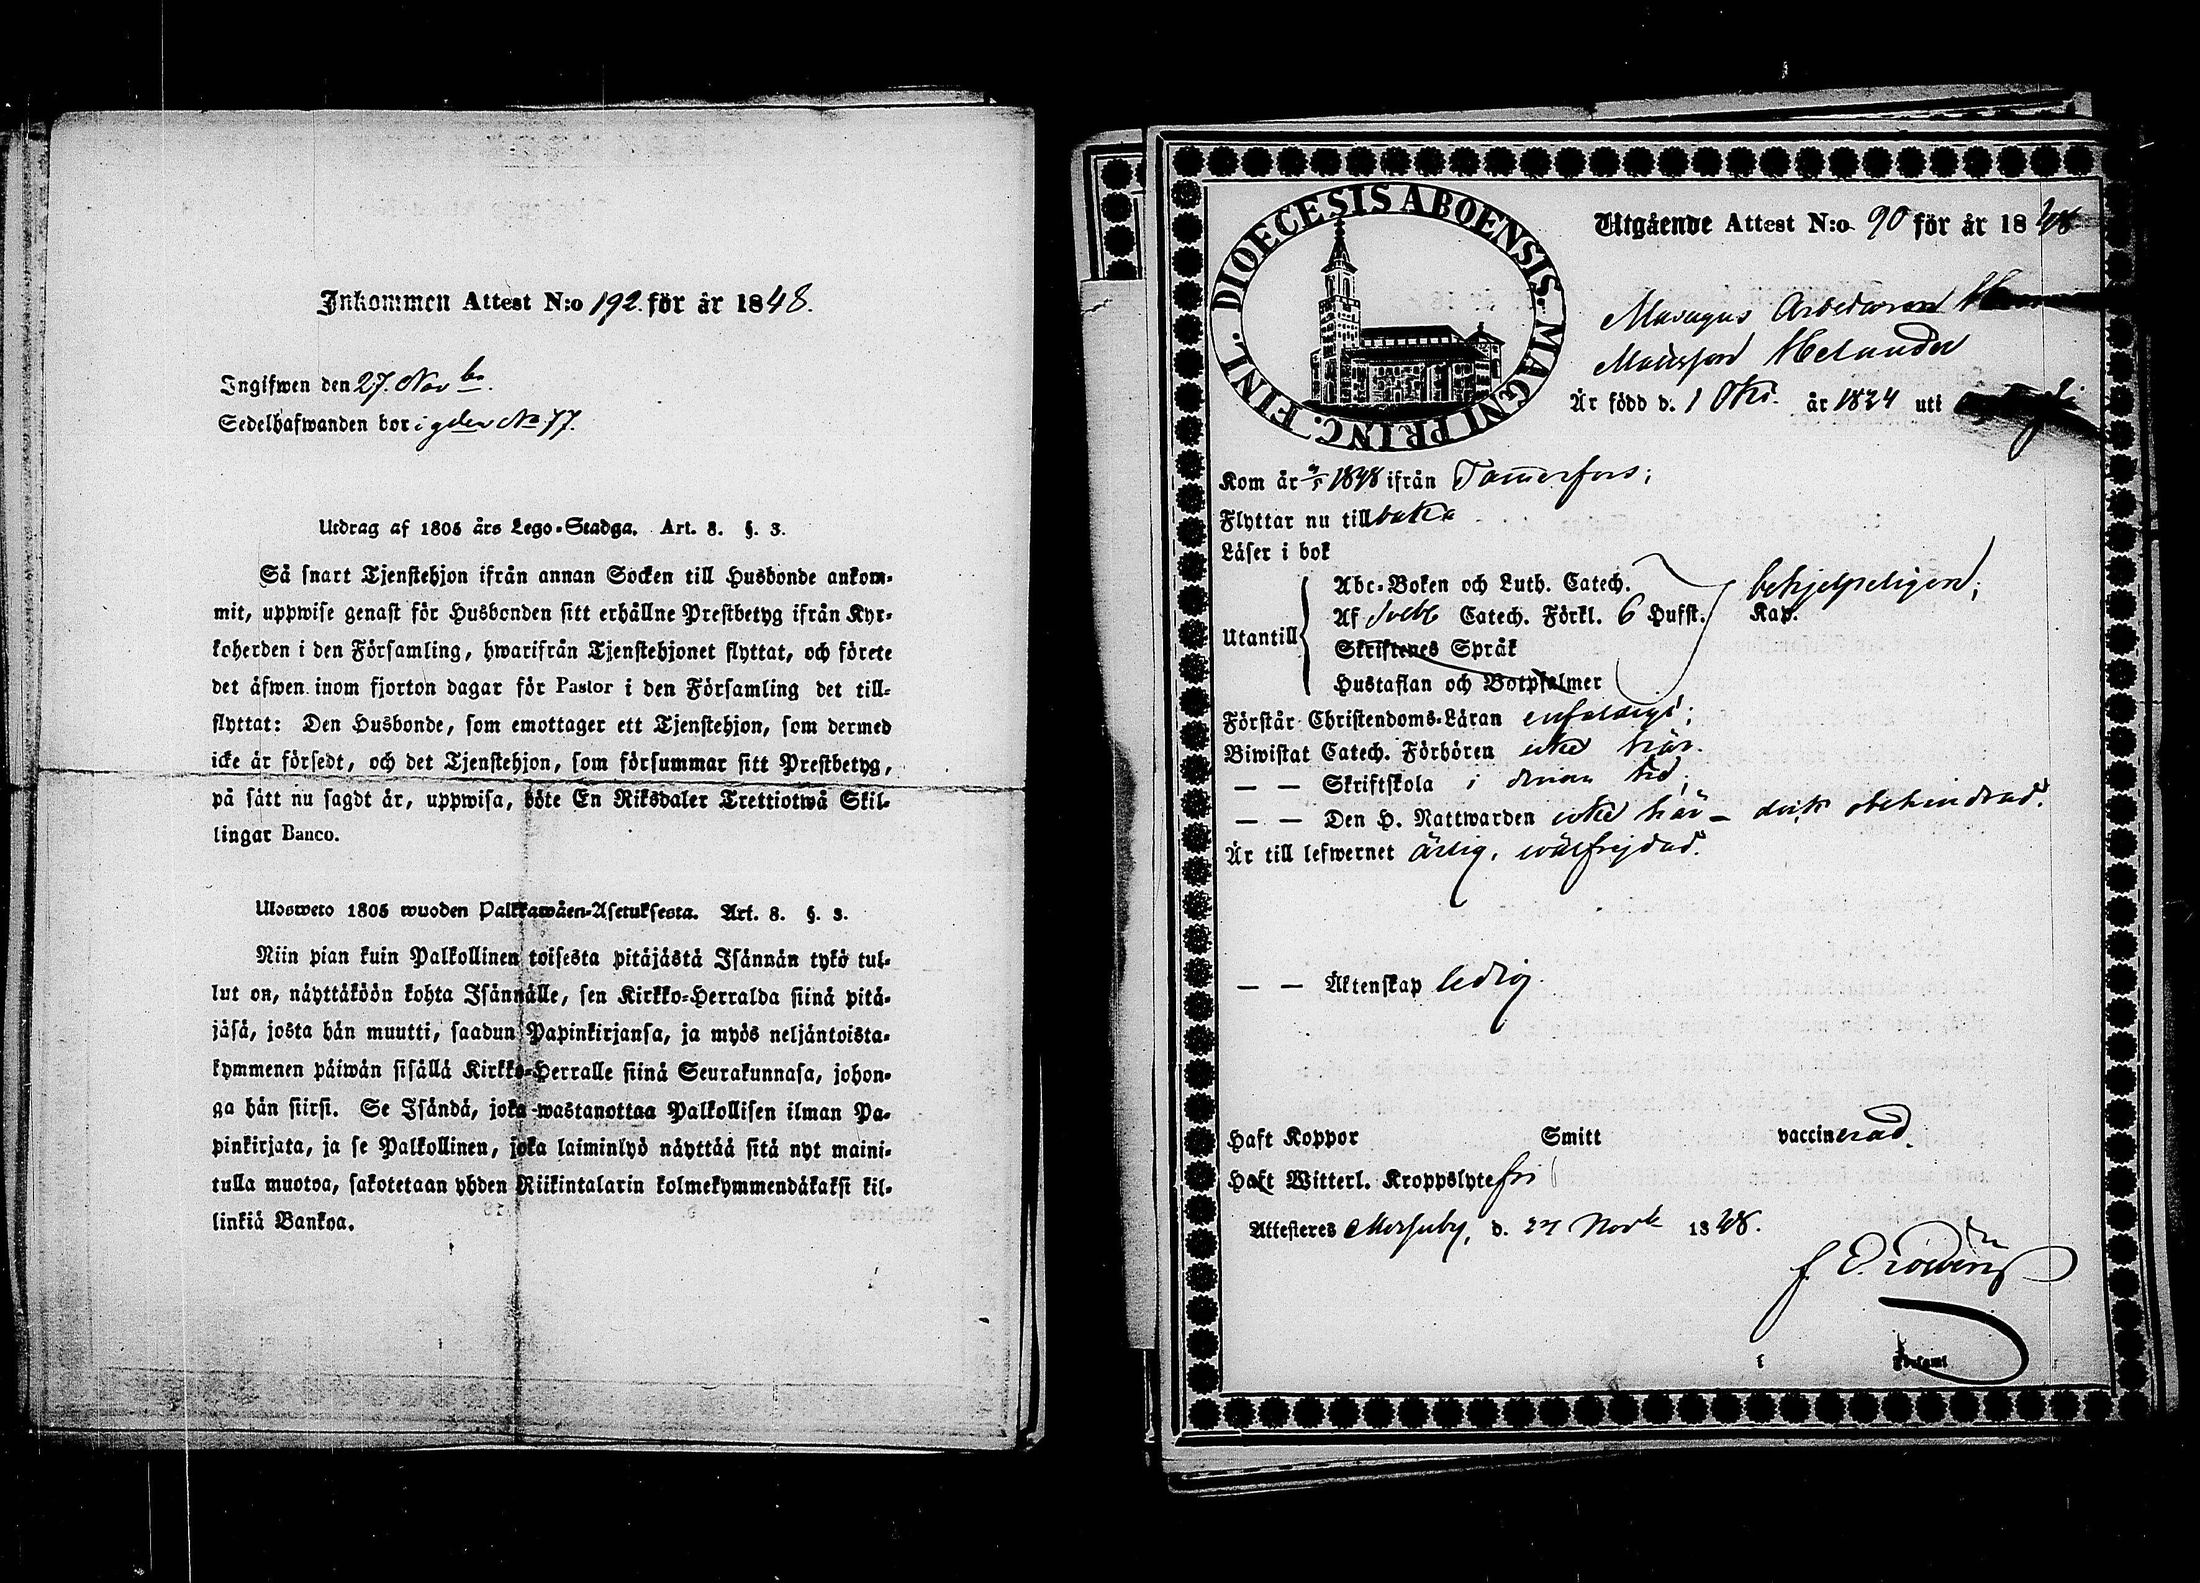 Inkommen Attest N:o 192. för år 1848.
Ingifwen den 27. Novbr.
Sedelhafwanden bor i gden No 77.
Utdrag af 1805 års Lego-Stadga. Art. 8. §. 3.
Så snart Tjenstehjon ifrån annan Socken till Husbonde ankom-
mit, uppwise genast för Husbonden sitt erhållne Prestbetyg ifrån Kyr-
koherden i den Församling, hwarifrån Tjenstehjonet flyttat, och förete
det äfwen inom fjorton dagar för Pastor i den Församling det till-
flyttat: Den Husbonde, som emottager ett Tjenstehjon, som dermed
icke är försedt, och det Tjenstehjon, som försummar sitt Prestbetyg,
på sätt nu sagdt är, uppwisa, böte En Riksdaler Trettiotwå Skil-
lingar Banco.
Ulosweto 1805 wuoden Palkkawäen-Asetuksesta. Art. 8. §. 3.
Niin pian kuin Palkollinen toisesta pitäjästä Isännän tykö tul-
lut on, näyttäköön kohta Isännälle, sen Kirkko-Herralda siinä pitä-
jäsä, josta hän muutti, saadun Papinkirjansa, ja myös neljäntoista-
kymmenen päiwän sisällä Kirkko-Herralle siinä Seurakunnasa, johon-
ga hän siirsi. Se Isändä, joka wastanottaa Palkollisen ilman Pa-
pinkirjata, ja se Palkollinen, joka laiminlyö näyttää sitä nyt maini-
tulla muotoa, sakotetaan yhden Riikintalarin kolmekymmendäkaksi kil-
linkiä Bankoa.
DIOECESIS ABOENSIS. MAGNI PRINC. FINL.
Utgående Attest N:o 90 för år 1848
Arbetaren
Matsson Helander
Är född d. 1 Okt. år 1824 uti
Kom år 1848 ifrån Tammerfors;
Flyttar nu tillbaka
Läser i bok
Abc-Boken och Luth. Catech. behjelpeligen;
Utantill Af Svebe Catech. Förkl. 6 Hufst. Kap.
Skriftenes Språk
Hustaflan och Botpsalmer
Förstår Christendoms-Läran enfaldigt;
Biwistat Catech. Förhören icke här.
— — Skriftskola i denna tid;
— — Den H. Nattwarden icke här – dock obehindrad.
Är till lefwernet ärlig, wälfrejdad.
— — Äktenskap ledig.
Haft Koppor Smitt vaccinerad.
Haft Witterl. Kroppslyte fri
Attesteras d. 27 Novbr 1848.
i Församl